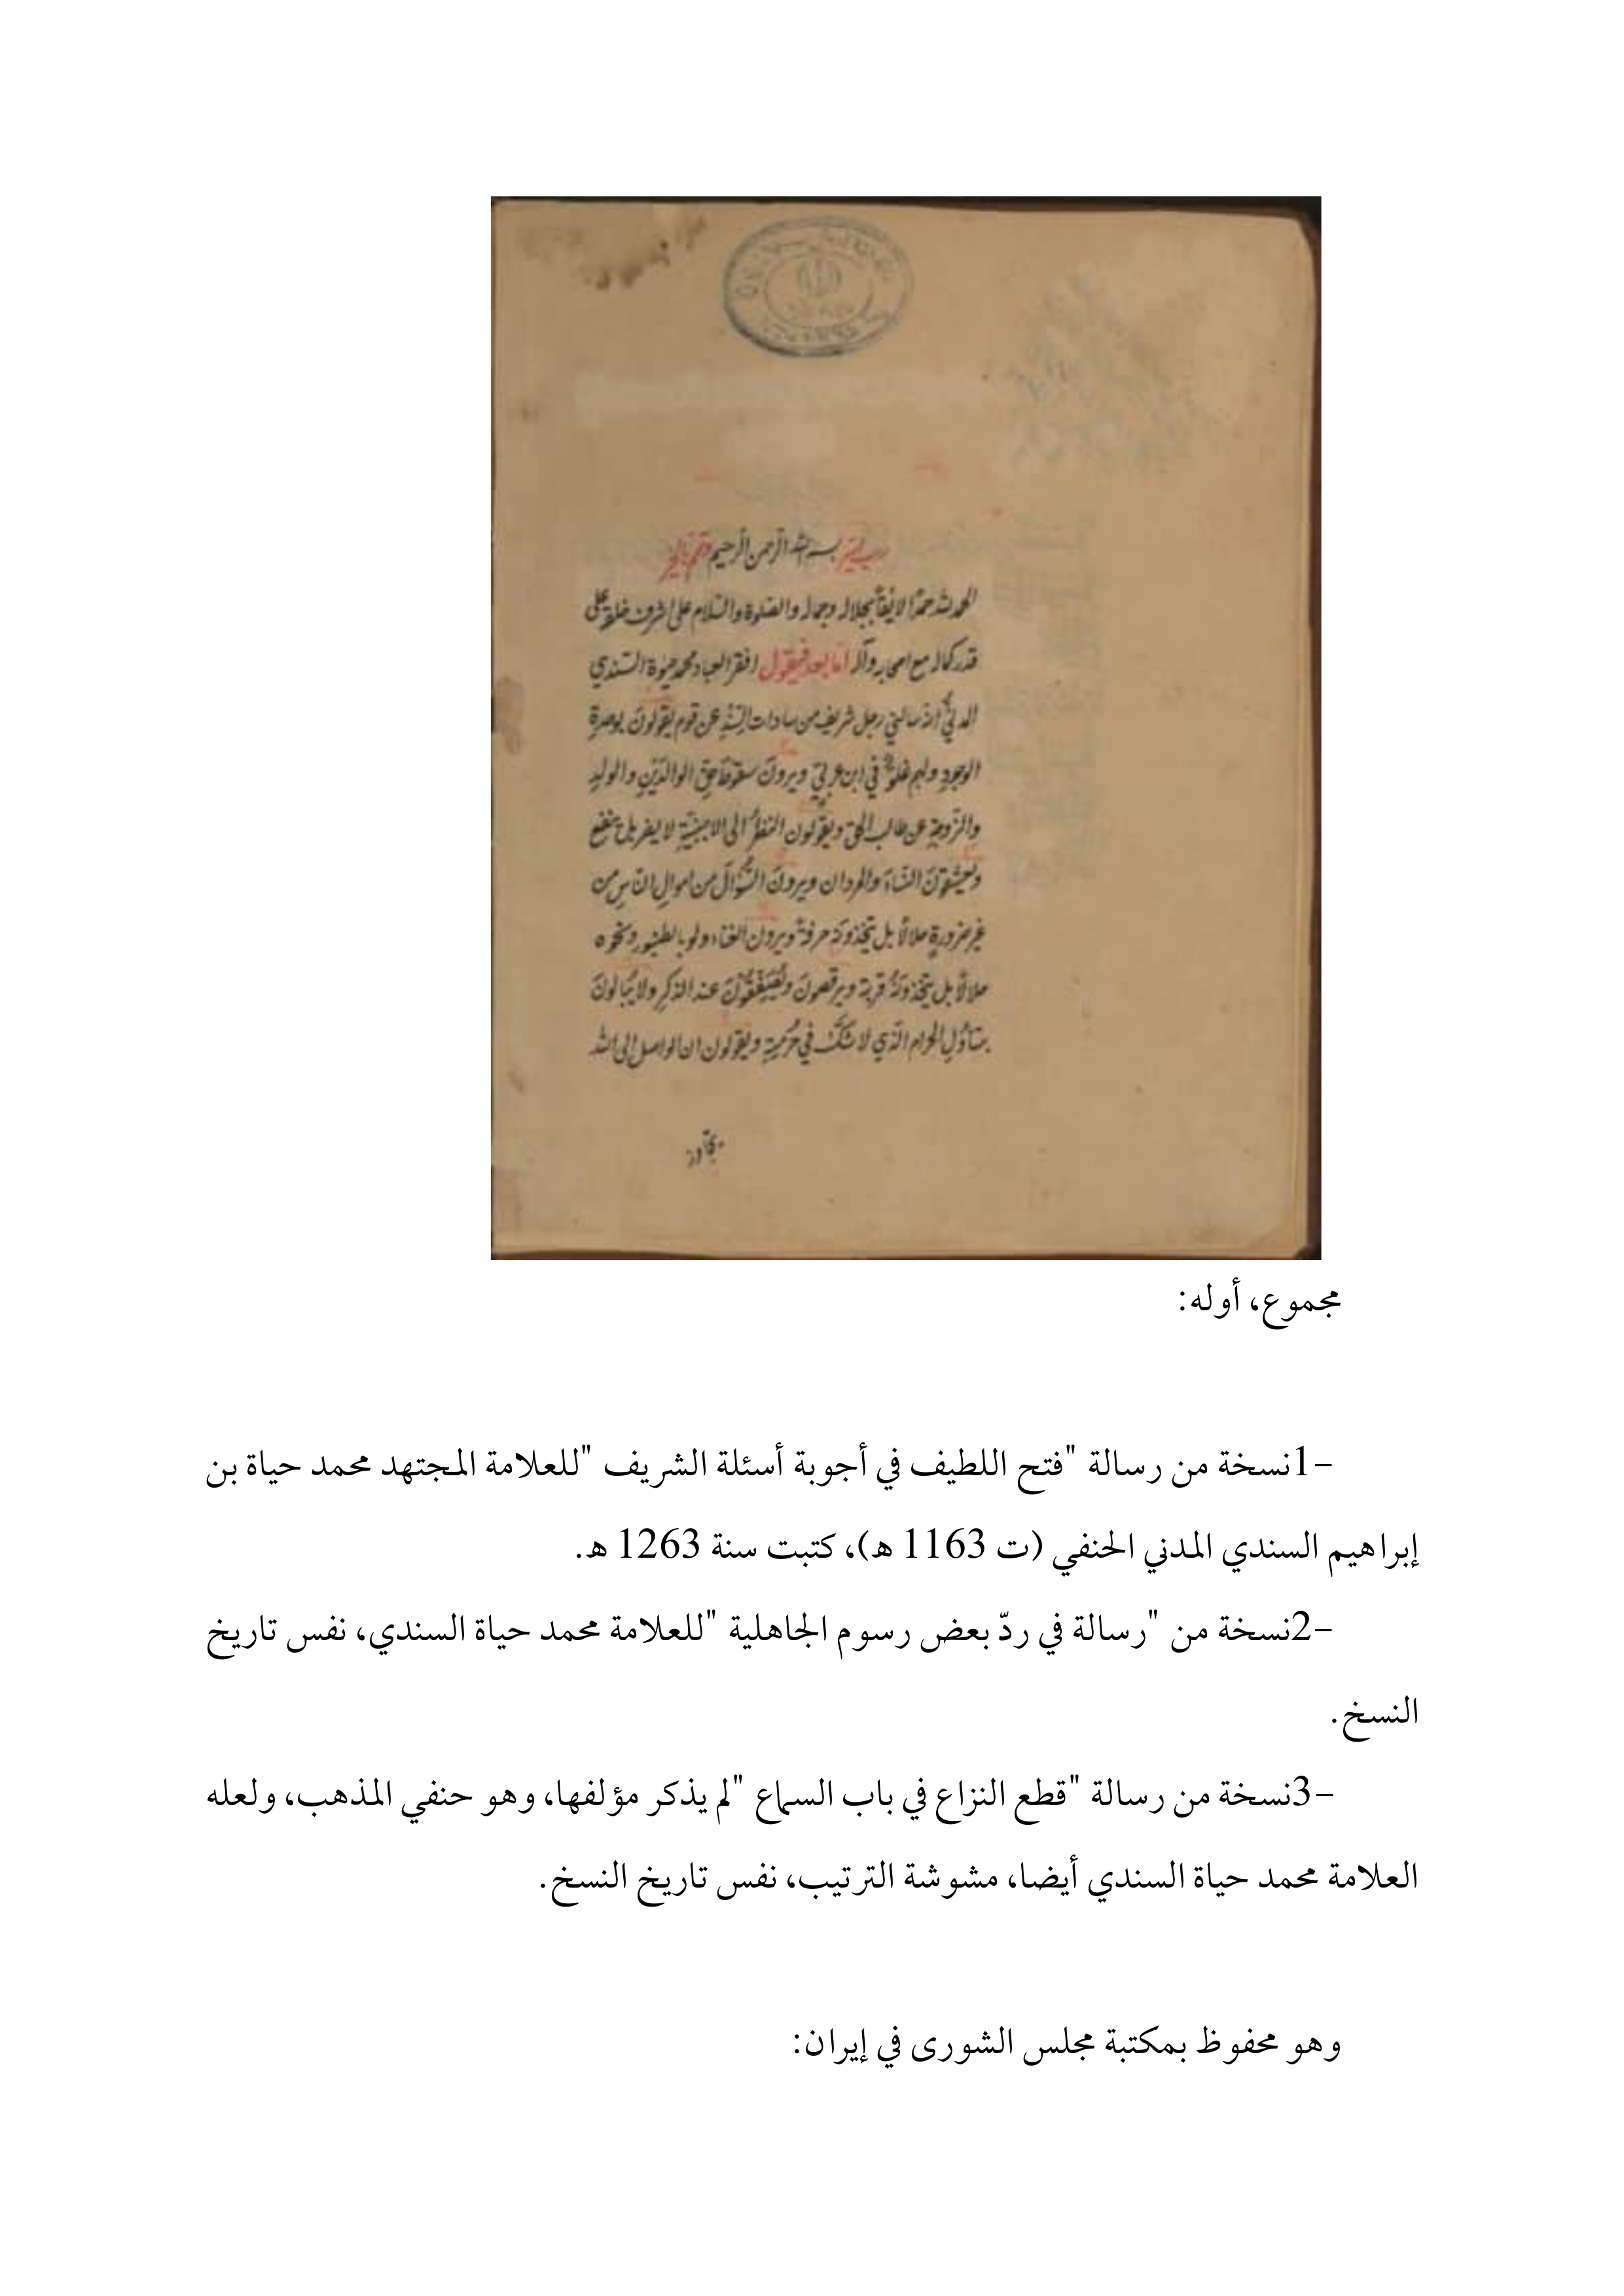 رب يسر بسم الله الرحمن الرحيم وتمم بالخير
الحمد لله حمدا لايقا بجلاله وجماله والصلوة والسلام على اشرف خلقه على
قدر كماله مع اصحابه وآله اما بعد فيقول افقر العباد محمد حيوة السندي
المدني انه سالني رجل شريف من سادات السند عن قوم يقولون بوحدة
الوجود ولهم غلو في ابن عربي ويرون سقوط حق الوالدين والولد
والزوجة عن طالب الحق ويقولون النظر الى الاجنبية لا يضر بل ينفع
ويعشقون النساء والمردان ويرون السؤال من اموال الناس من
غير ضرورة حلالا بل يتخذونه حرفة ويرون الغناء ولو بالطنبور ونحوه
حلالا بل يتخذونه قربة ويرقصون ويصفقون عند الذكر ولا يبالون
بتناول الحرام الذي لا شك في حرمته ويقولون ان الواصل الى الله
مجموع، أوله:
-1نسخة من رسالة "فتح اللطيف في أجوبة أسئلة الشريف "للعلامة المجتهد محمد حياة بن
إبراهيم السندي المدني الحنفي (ت 1163 هـ)، كتبت سنة 1263 هـ.
-2نسخة من "رسالة في ردّ بعض رسوم الجاهلية "للعلامة محمد حياة السندي، نفس تاريخ
النسخ.
-3نسخة من رسالة "قطع النزاع في باب السماع "لم يذكر مؤلفها، وهو حنفي المذهب، ولعله
العلامة محمد حياة السندي أيضا، مشوشة الترتيب، نفس تاريخ النسخ.
وهو محفوظ بمكتبة مجلس الشورى في إيران: